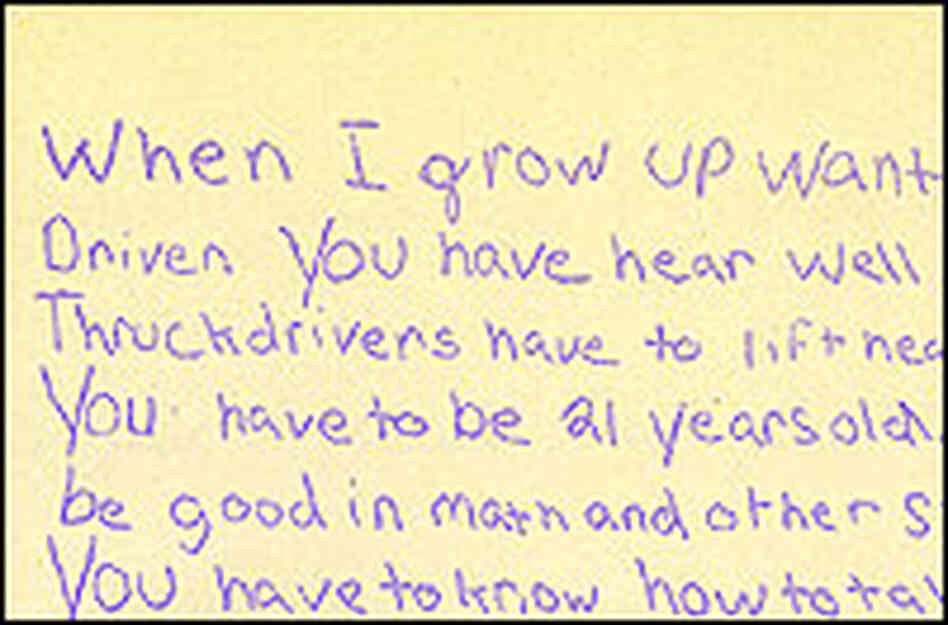 When I grow up want
Driven You have hear well
Thruckdrivens have to lift
You have to be 21 years old.
be good in math and other s
You have to know how to